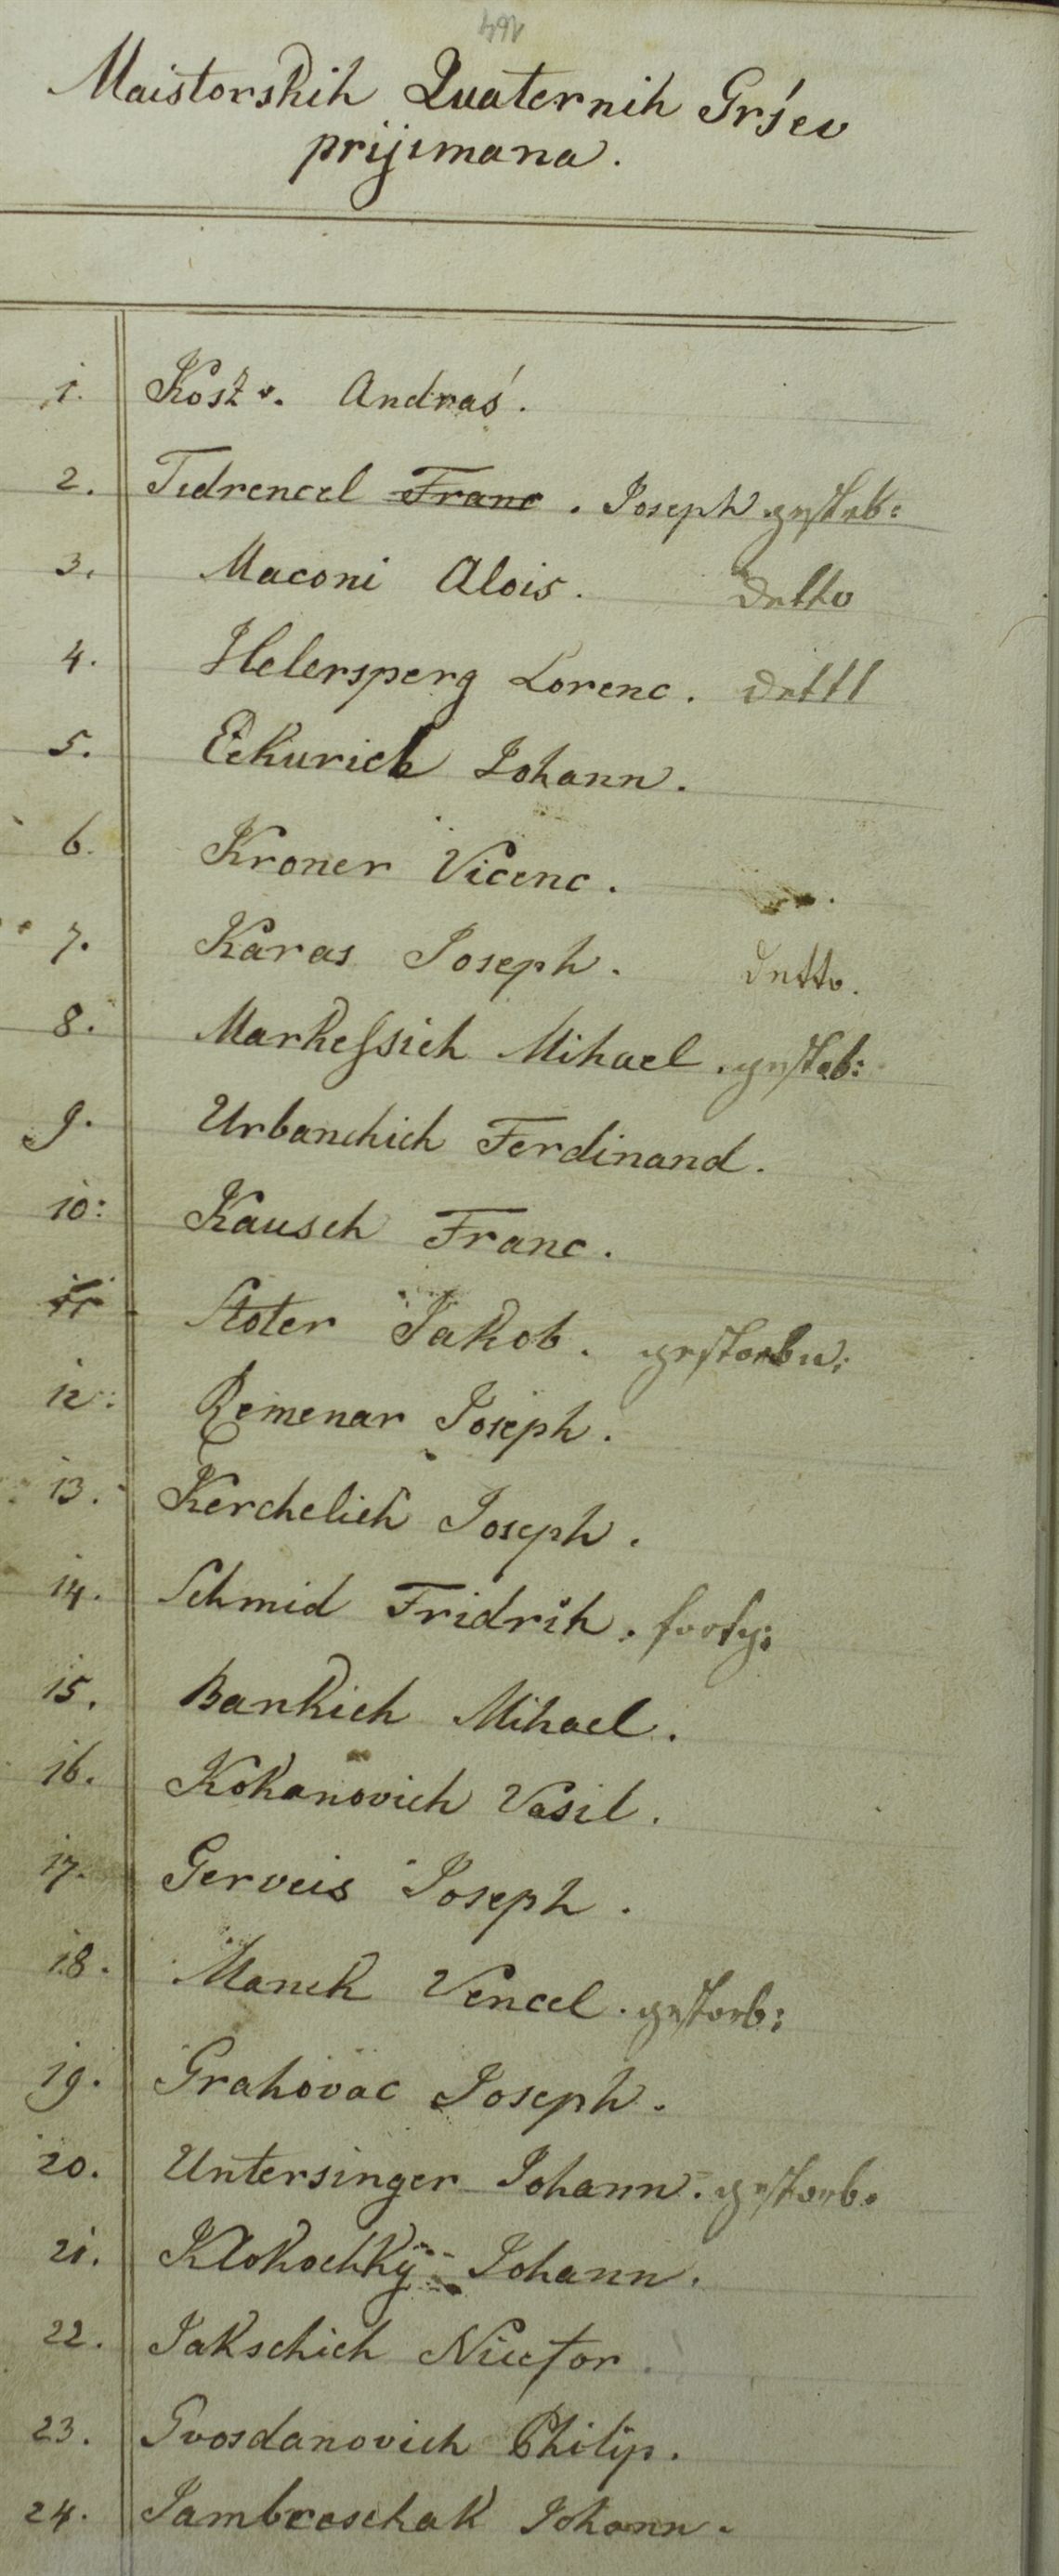 164
Maistorskih Quaternih Gršev
prijimana.
1. Kosz v. Andraś.
2. Tidrencel Franc. Joseph gestorb:
3. Maconi Alois. detto
4. Helersperg Lorenc. detto
5. Eckurich Johann.
6. Kroner Vicenc.
7. Karas Joseph. detto.
8. Markeſsich Mihael. gestorb:
9. Urbanchich Ferdinand.
10: Kausch Franc.
11 Stoter Jakob. gestorben:
12: Remenar Joseph.
13. Kerchelich Joseph.
14. Schmid Fridrih.
15. Bankich Mihael.
16. Kokanovich Vasil.
17. Gerveis Joseph.
18. Manck Vencel. gestorb:
19. Grahovac Joseph.
20. Untersinger Johann. gestorb.
21. Klokochkÿ Johann.
22. Jakschich
23. Gvosdanovich Philip.
24. Jambreschak Johann.